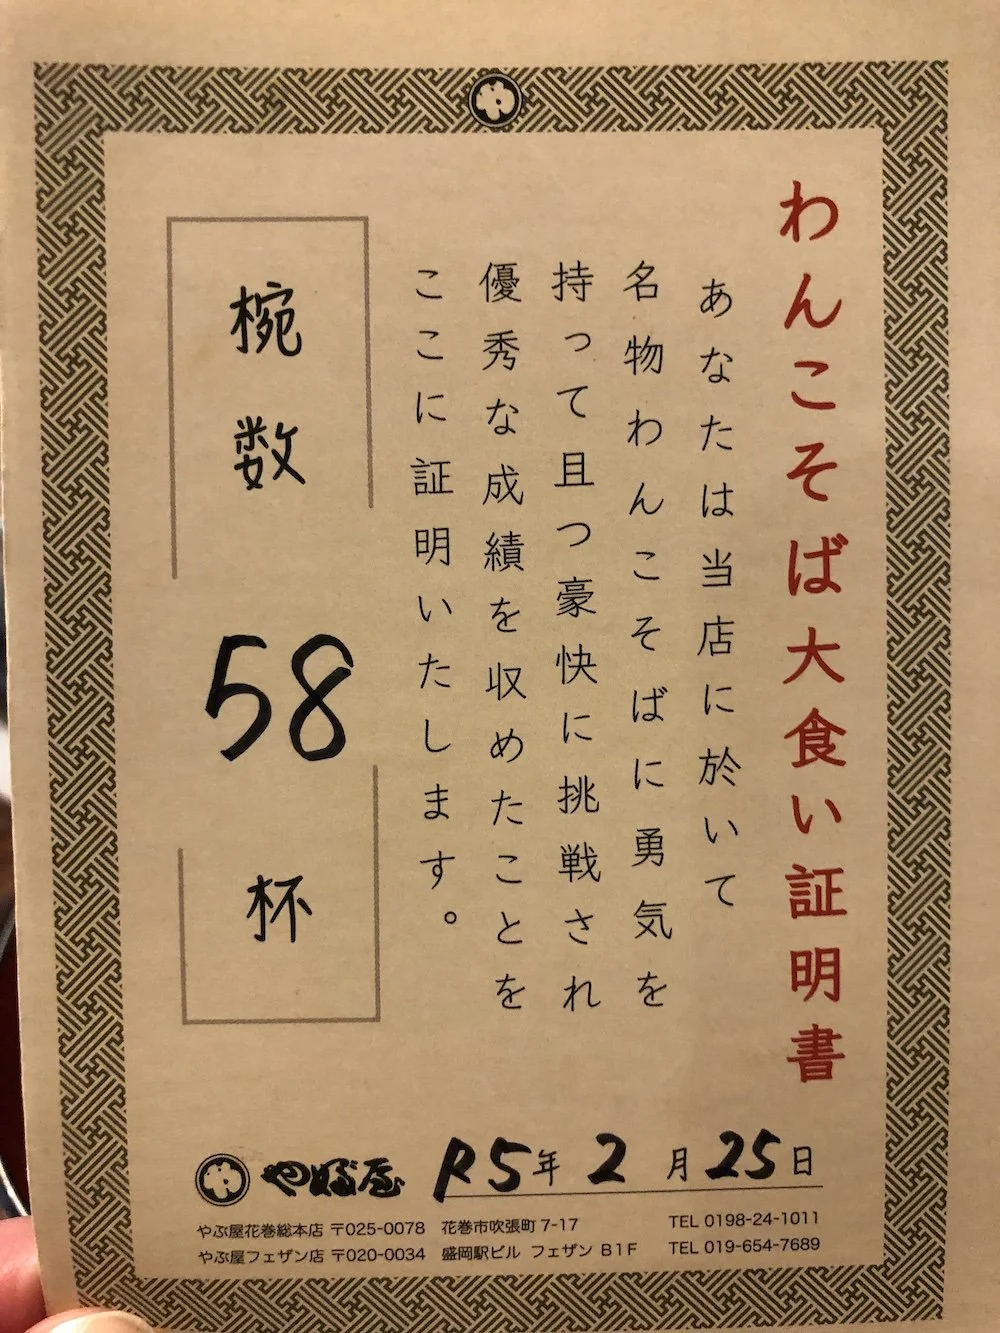 わんこそば大食い証明書
あなたは当店に於いて
名物わんこそばに勇気を
持って且つ豪快に挑戦され
優秀な成績を収めたことを
ここに証明いたします。
椀数
58
杯
やぶ屋 R5年2月25日
やぶ屋花巻総本店 〒025-0078 花巻市吹張町7-17 TEL 0198-24-1011
やぶ屋フェザン店 〒020-0034 盛岡駅ビル フェザン B1F TEL 019-654-7689